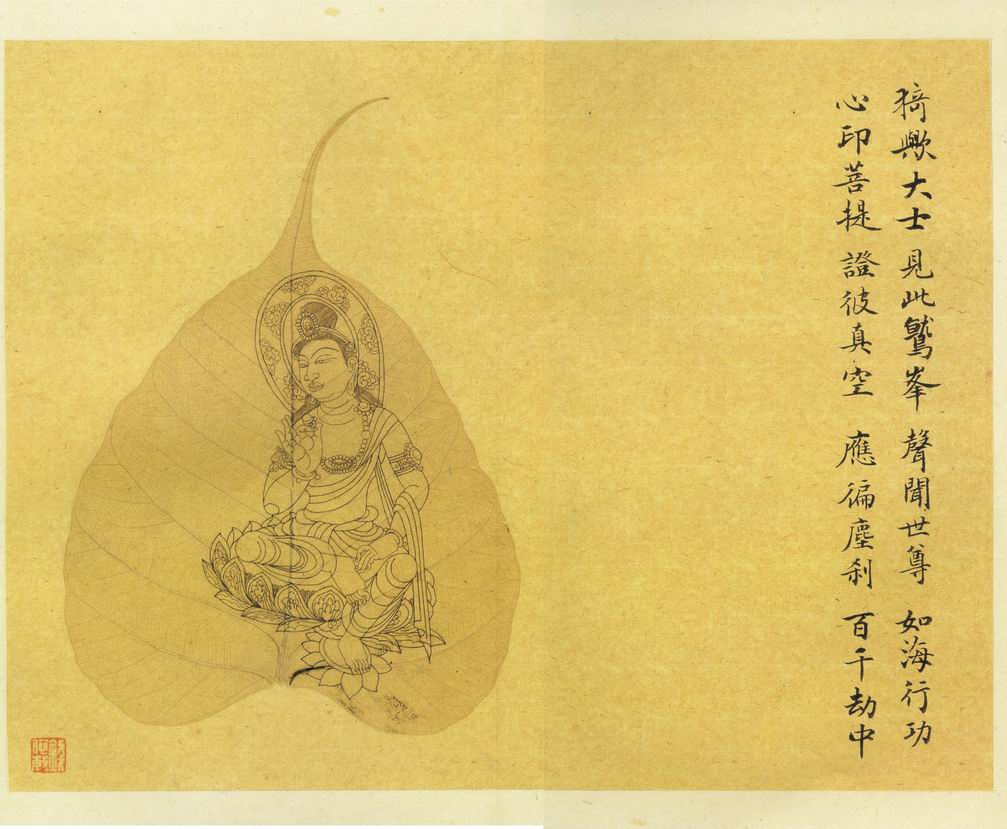 猗歟大士 見此鷲峯 聲聞世尊 如海行功
心印菩提 證彼真空 應徧塵刹 百千劫中